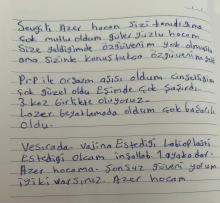 Sevgili Azer hocam sizi tanıdığıma
çok mutlu oldum güler yüzlü hocam
size geldiğimde özgüvenim yok olmuştu
ama sizinle konuştukca özgüvenim geldi
Prp ile orgazm aşısı oldum cinselliğim
çok güzel oldu Eşimde çok şaşırdı
3. kez birlikte oluyoruz
Lazer beyazlamada oldum çok başarılı
oldu.
Vesirada vajina Estediği Labioplasti
Estediği olcam inşallah 1. ayakadar
Azer hocama sonsuz güveni yolum
iyiki varsınız Azer hocam